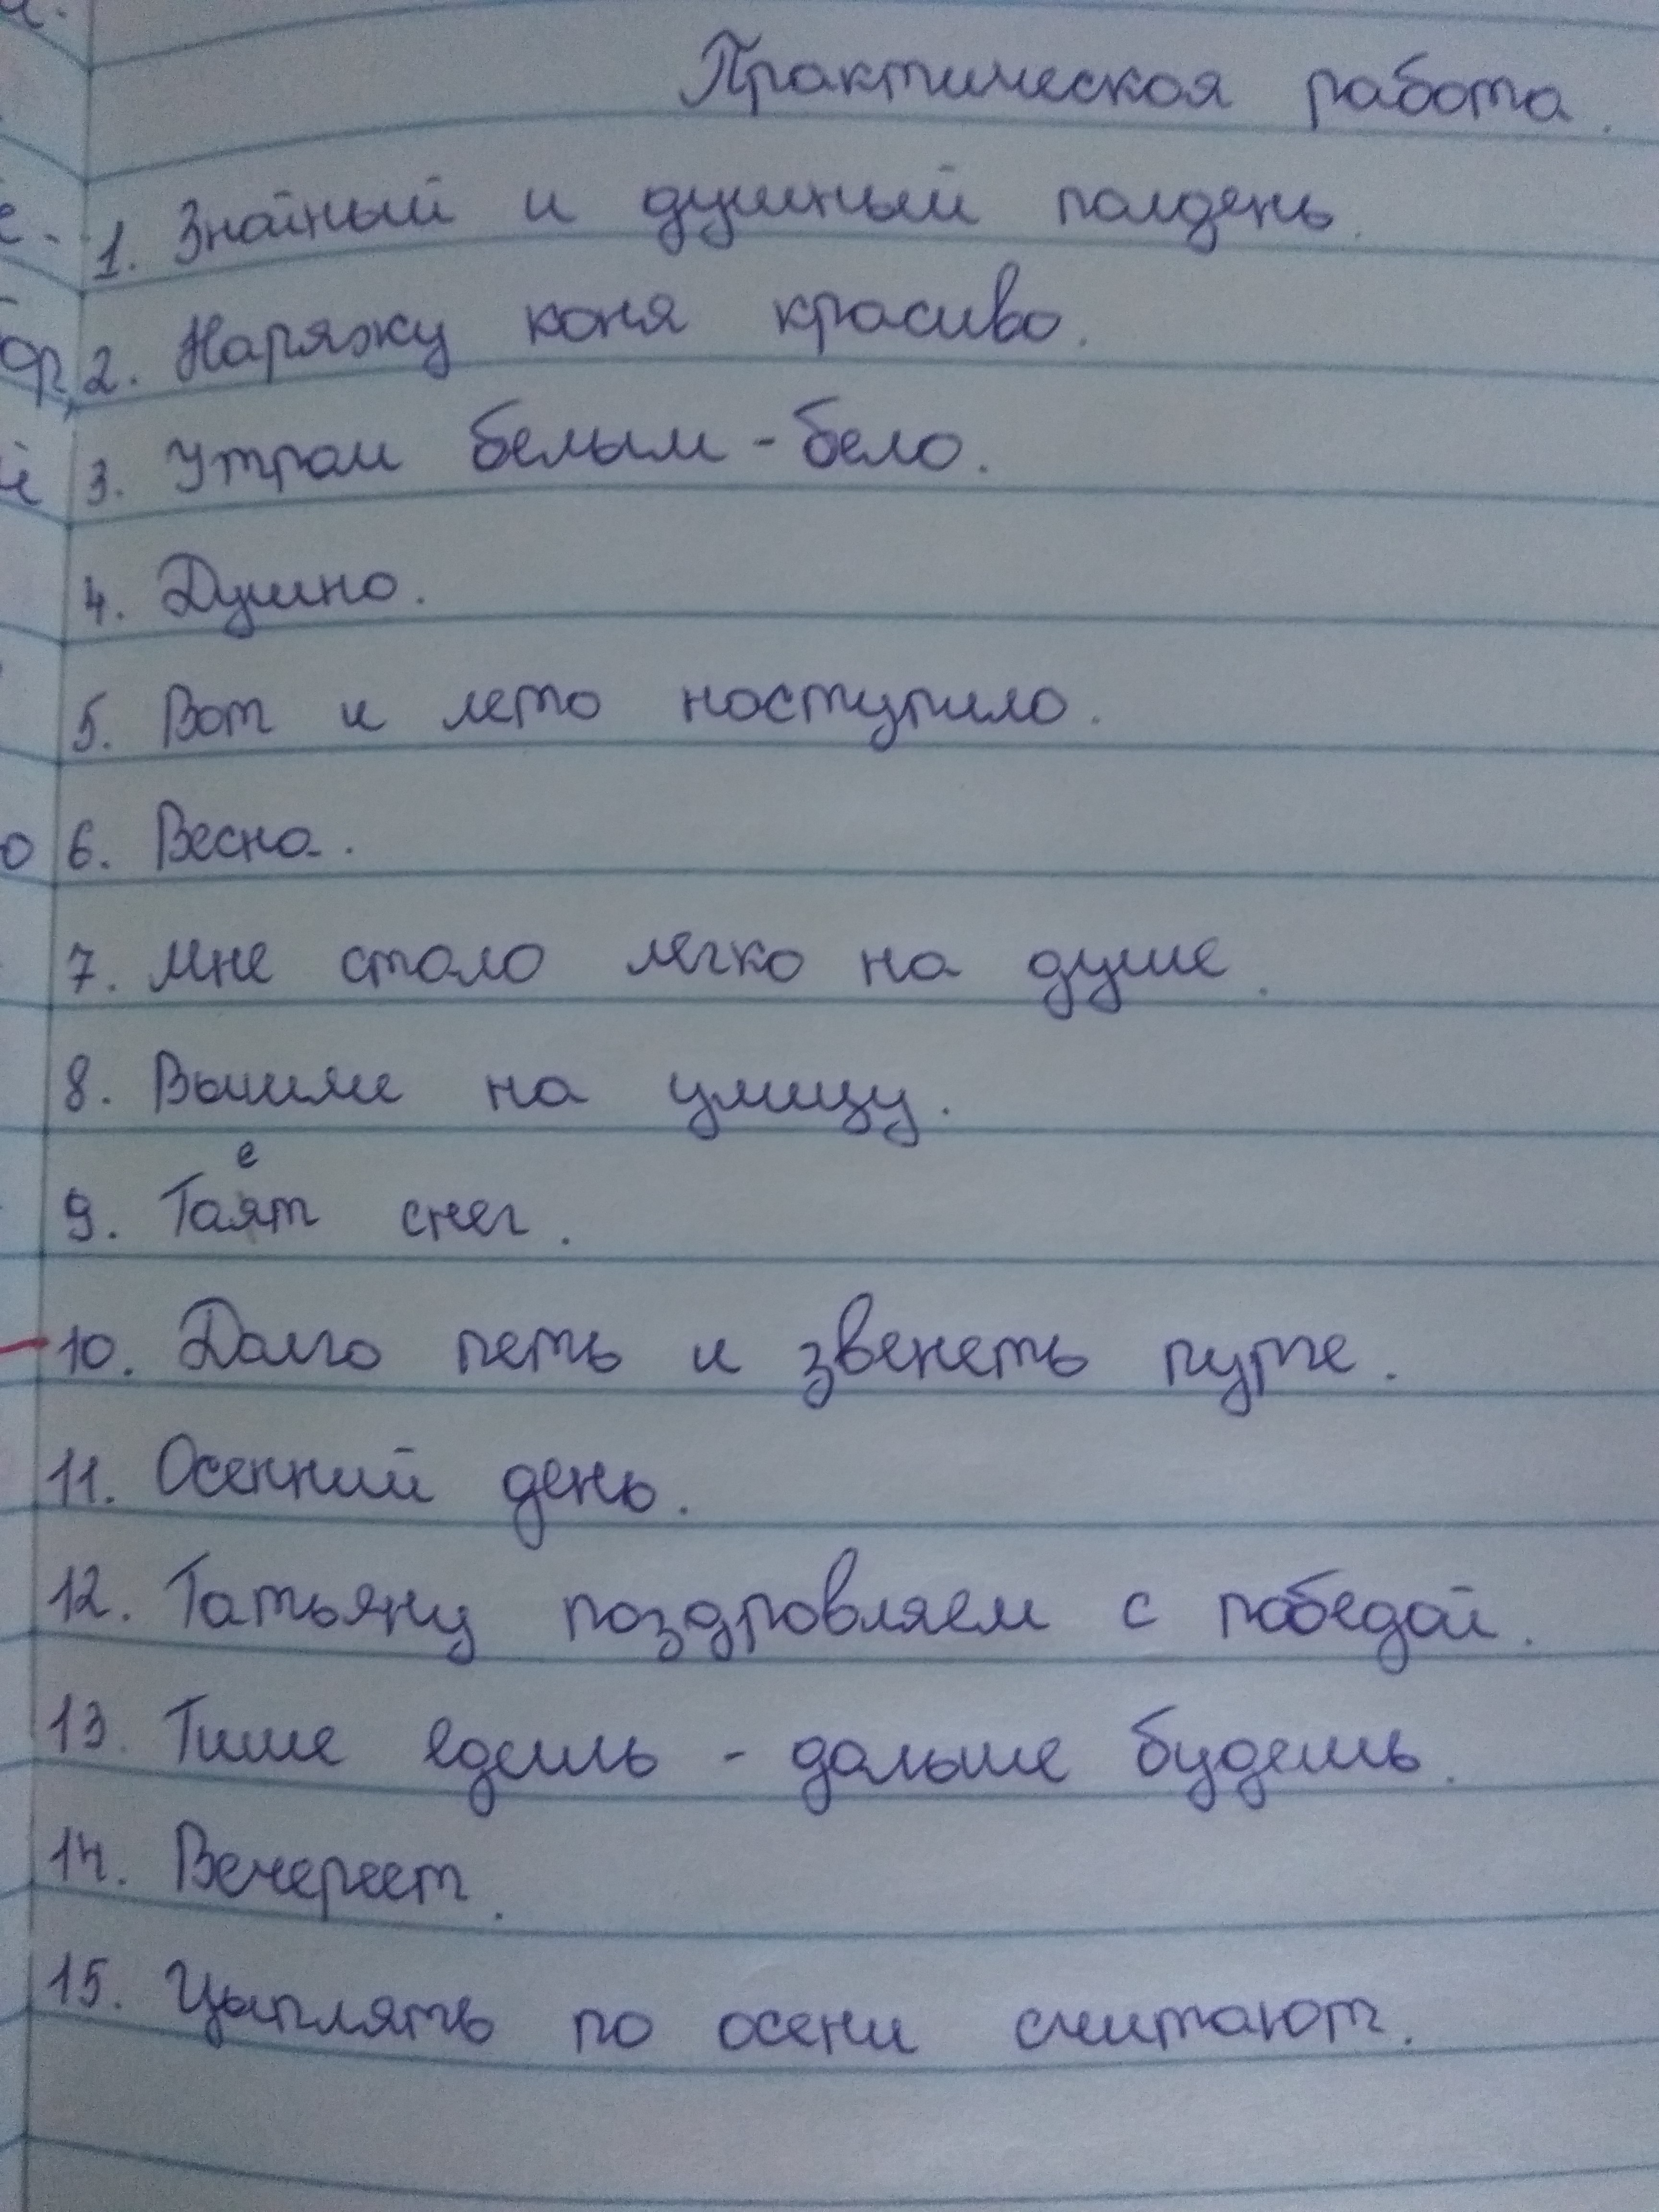 Практическая работа.
1. Знайный и душный полдень.
2. Наряжу коня красиво.
3. Утром белым-бело.
4. Душно.
5. Вот и лето наступило.
6. Весна.
7. Мне стало легко на душе.
8. Вышли на улицу.
е
9. Таят снег.
10. Долго петь и звенеть пурге.
11. Осенний день.
12. Татьяну поздровляем с победой.
13. Тише едешь - дальше будешь.
14. Вечереет.
15. Цыплять по осени считают.